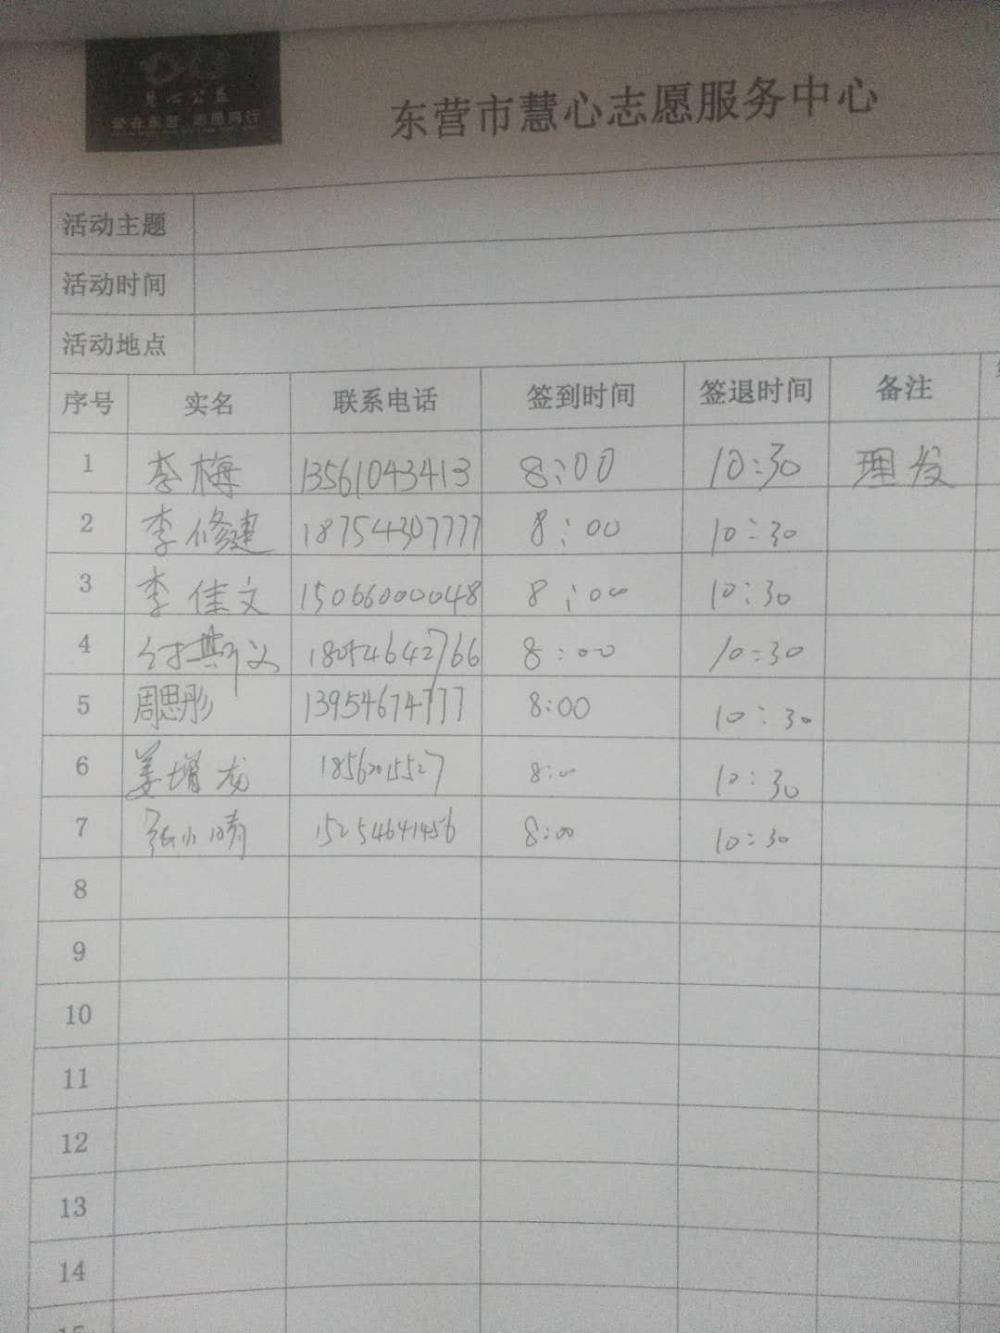 慧心公益
爱在东营 志愿同行
东营市慧心志愿服务中心
活动主题
活动时间
活动地点
序号 实名 联系电话 签到时间 签退时间 备注
1 李梅 13561043413 8:00 10:30 理发
2 李修建 18754307777 8:00 10:30
3 李佳文 15066000048 8:00 10:30
4 付斯义 18054642766 8:00 10:30
5 周思彤 13954674777 8:00 10:30
6 姜增龙 18562015527 8:00 10:30
7 张小晴 15254641456 8:00 10:30
8
9
10
11
12
13
14
15